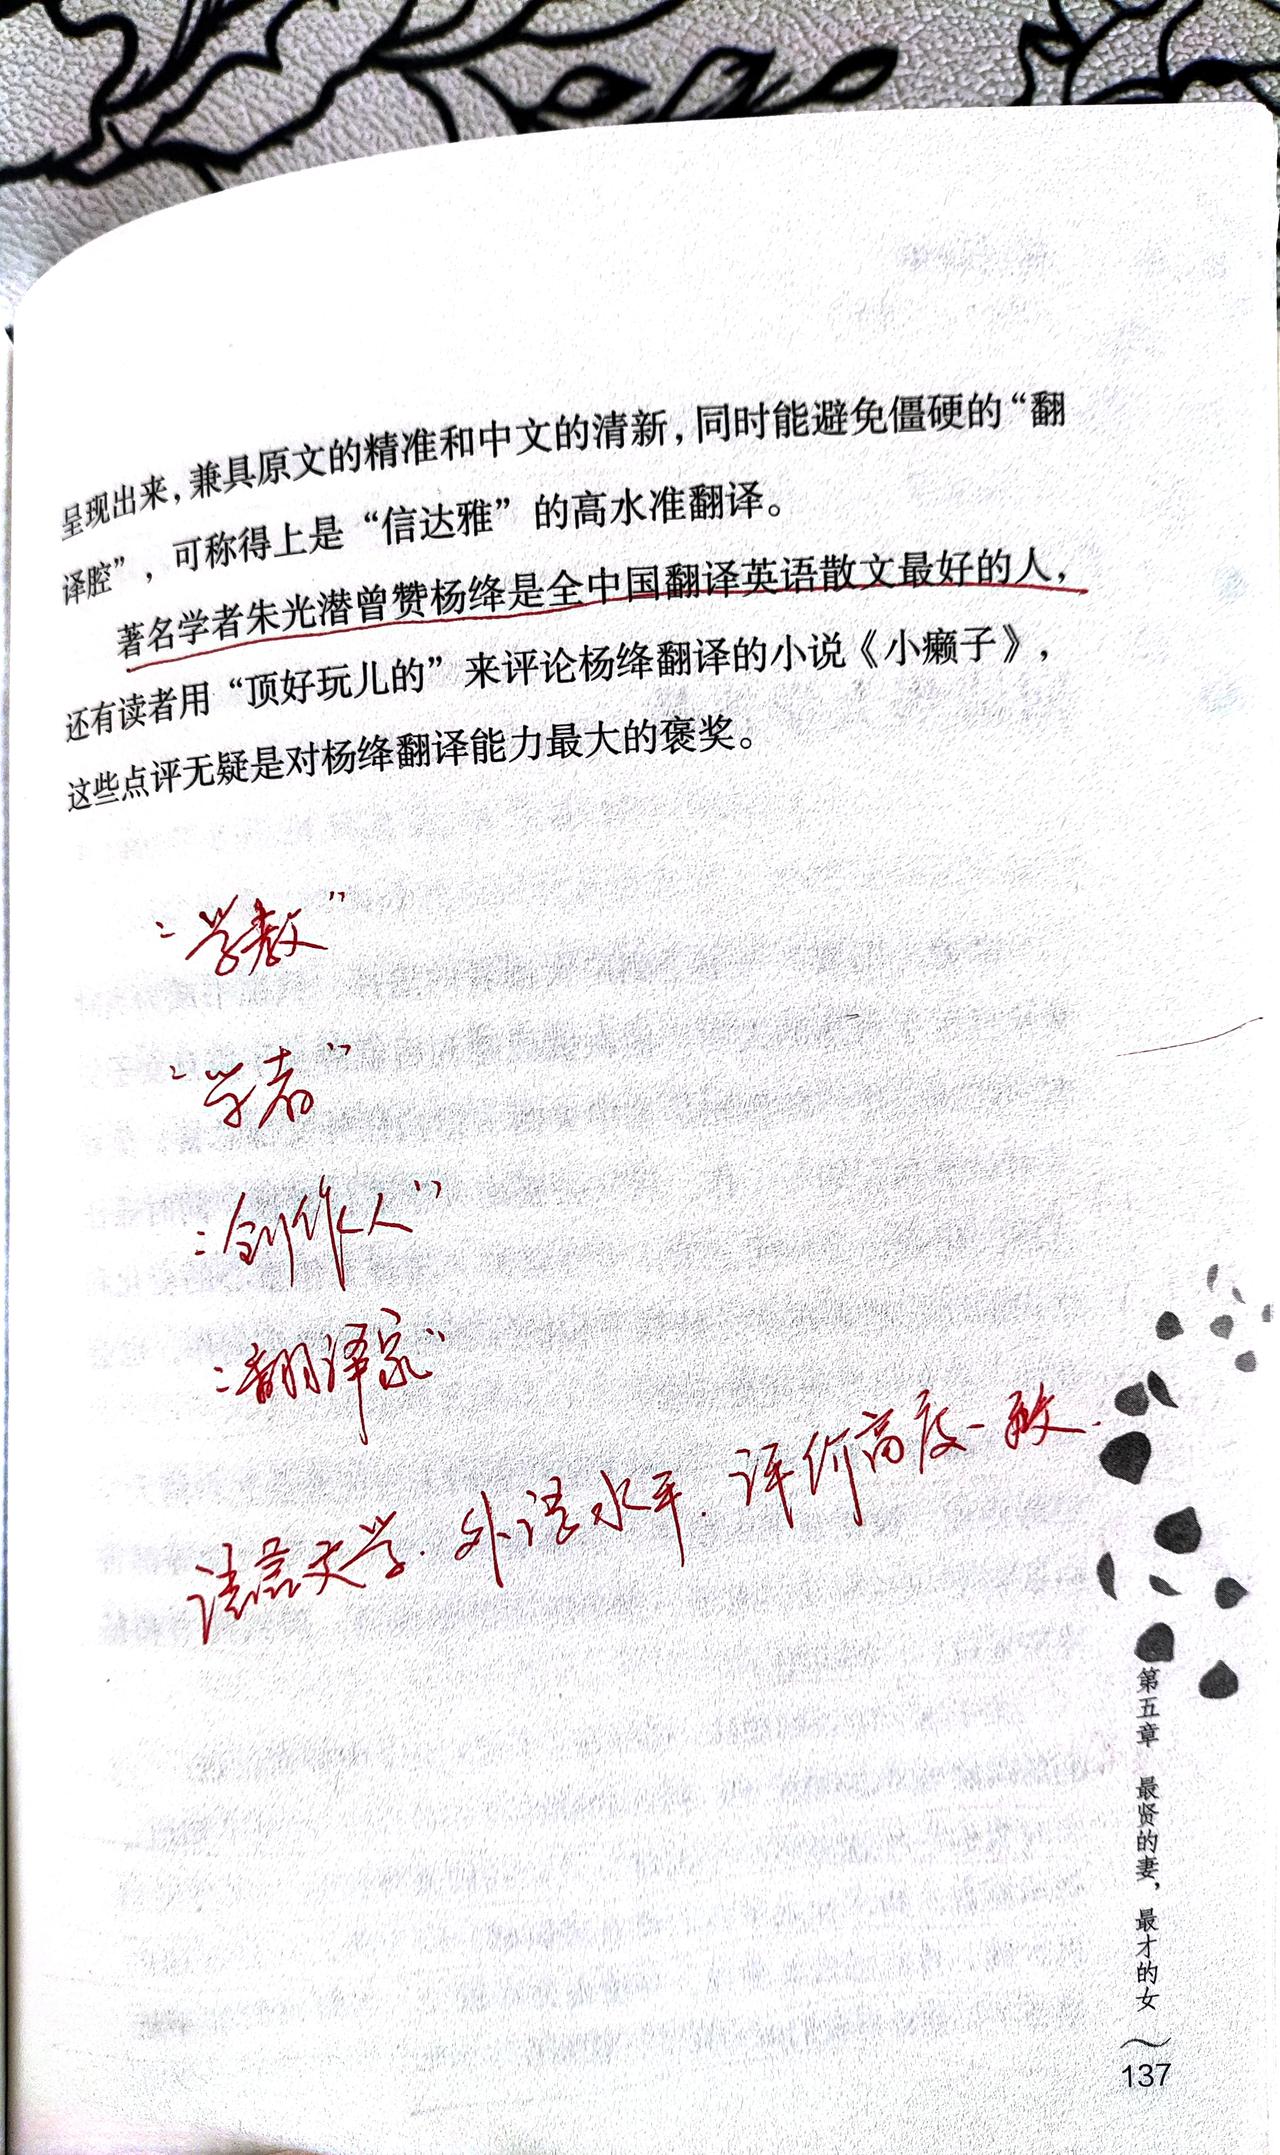 呈现出来，兼具原文的精准和中文的清新，同时能避免僵硬的“翻
译腔”，可称得上是“信达雅”的高水准翻译。
著名学者朱光潜曾赞杨绛是全中国翻译英语散文最好的人，
还有读者用“顶好玩儿的”来评论杨绛翻译的小说《小癞子》，
这些点评无疑是对杨绛翻译能力最大的褒奖。
“学教”
“学者”
“创作人”
“翻译家”
语言文学.外语水平.评价高度一致.
第五章 最贤的妻，最才的女
137